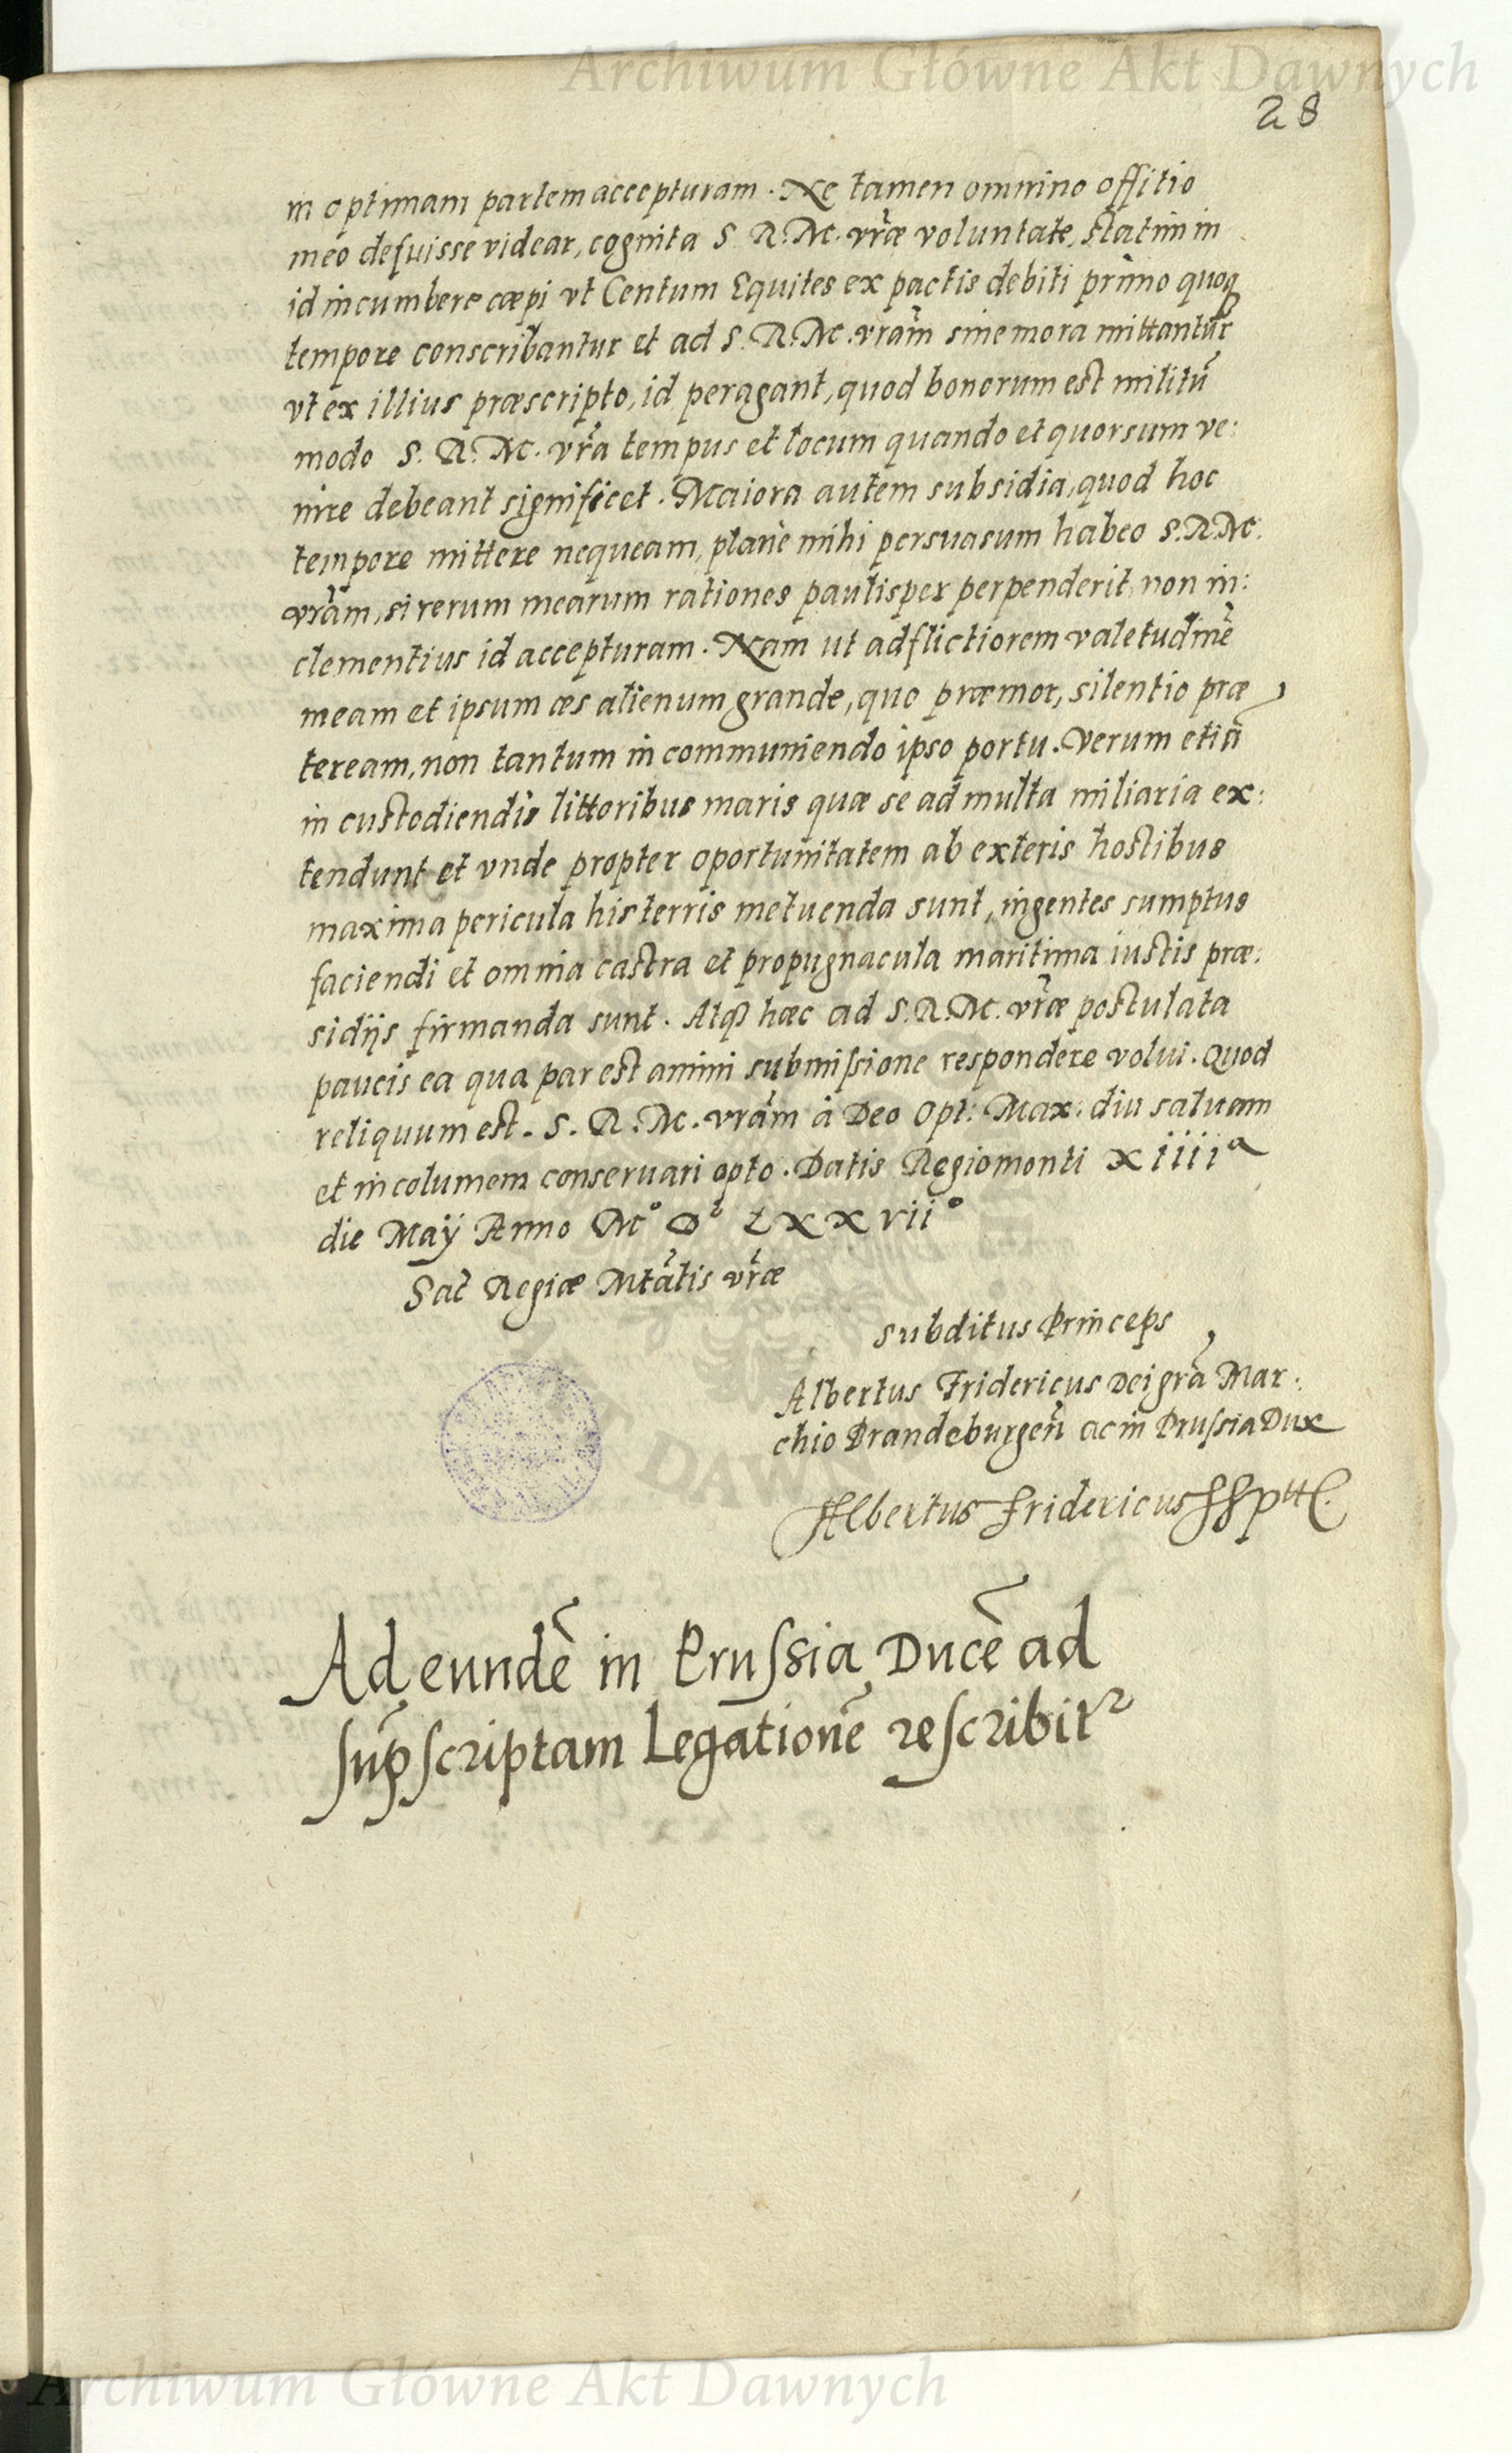 Archiwum Główne Akt Dawnych
28
in optimam partem accepturam. Ne tamen omnino offitio
meo defuisse videar, cognita S. R. M. vr̃æ voluntate, statim in
id incumbere cæpi vt Centum Equites ex pactis debiti primo quoq
tempore conscribantur et ad S. R. M. vrãm sine mora mittantur
vt ex illius præscripto, id peragant, quod bonorum est militũ
modo S. R. M. vr̃a tempus et locum quando et quorsum ve:
nire debeant significet. Maiora autem subsidia, quod hoc
tempore mittere nequeam, planè mihi persuasum habeo S. R. M.
vrãm, si rerum mearum rationes paulisper perpenderit, non in:
clementius id accepturam. Nam ut adflictiorem valetudinẽ
meam et ipsum æs alienum grande, quo præmor, silentio præ
teream, non tantum in communiendo ipso portu. Verum etiã
in custodiendis littoribus maris quæ se ad multa miliaria ex:
tendunt et vnde propter oportunitatem ab exteris hostibus
maxima pericula his terris metuenda sunt, ingentes sumptus
faciendi et omnia castra et propugnacula maritima iustis præ:
sidijs firmanda sunt. Atqꝫ hæc ad S. R. M. vr̃æ postulata
paucis ea qua par est animi submissione respondere volui. Quod
reliquum est. S. R. M. vrãm à Deo Opt: Max: diu saluam
et incolumem conseruari opto. Datis Regiomonti xiiiiª
die Maÿ Anno M° D° Lxxvii°
Sac̃ Regiæ Mtãtis vr̃æ
subditus Princeps
Albertus Fridericus Dei grã Mar:
chio Brandeburgeñ ac in Prussia Dux
Albertus Fridericus
Ad eundẽ in Prussia Ducẽ ad
sup̃scriptam Legationẽ rescribitr
DAWN
Archiwum Główne Akt Dawnych